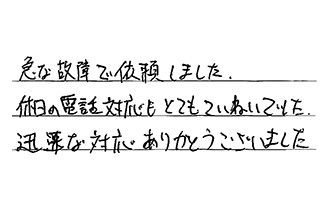 急な故障で依頼しました.
休日の電話対応もとてもていねいでした.
迅速な対応ありがとうございました